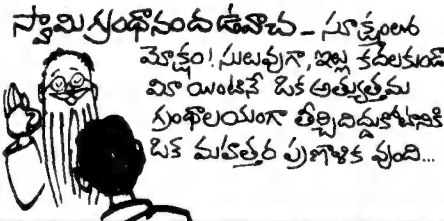 స్వామి గ్రంథానంద ఉవాచ - సూక్ష్మంలో
మోక్షం! సులువుగా, ఇల్లు కదలకుండా
మీ యింటినే ఒక అత్యుత్తమ
గ్రంథాలయంగా తీర్చిదిద్దుకోటానికి
ఒక మహత్తర ప్రణాళిక వుంది...